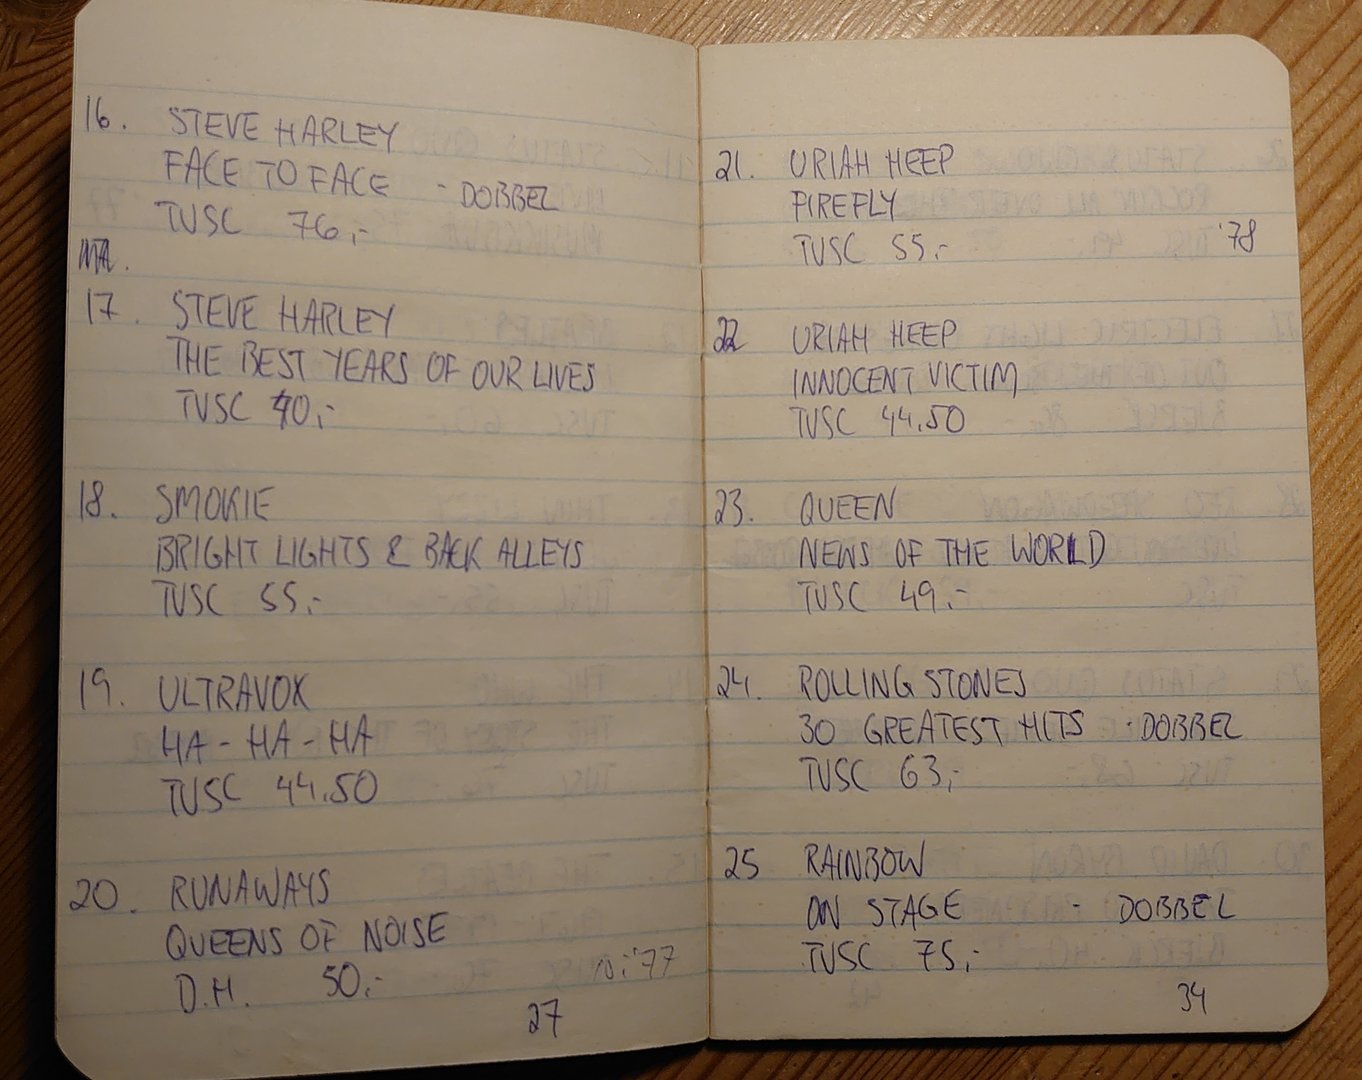 16. STEVE HARLEY
FACE TO FACE - DOBBEL
TUSC 76,-
17. STEVE HARLEY
THE BEST YEARS OF OUR LIVES
TUSC 40,-
18. SMOKIE
BRIGHT LIGHTS & BACK ALLEYS
TUSC 55,-
19. ULTRAVOX
HA - HA - HA
TUSC 44.50
20. RUNAWAYS
QUEENS OF NOISE
D.H. 50,-
'77
27
21. URIAH HEEP
FIREFLY
TUSC 55,- '78
22 URIAH HEEP
INNOCENT VICTIM
TUSC 44.50
23. QUEEN
NEWS OF THE WORLD
TUSC 49,-
24. ROLLING STONES
30 GREATEST HITS - DOBBEL
TUSC 63,-
25 RAINBOW
ON STAGE - DOBBEL
TUSC 75,-
34